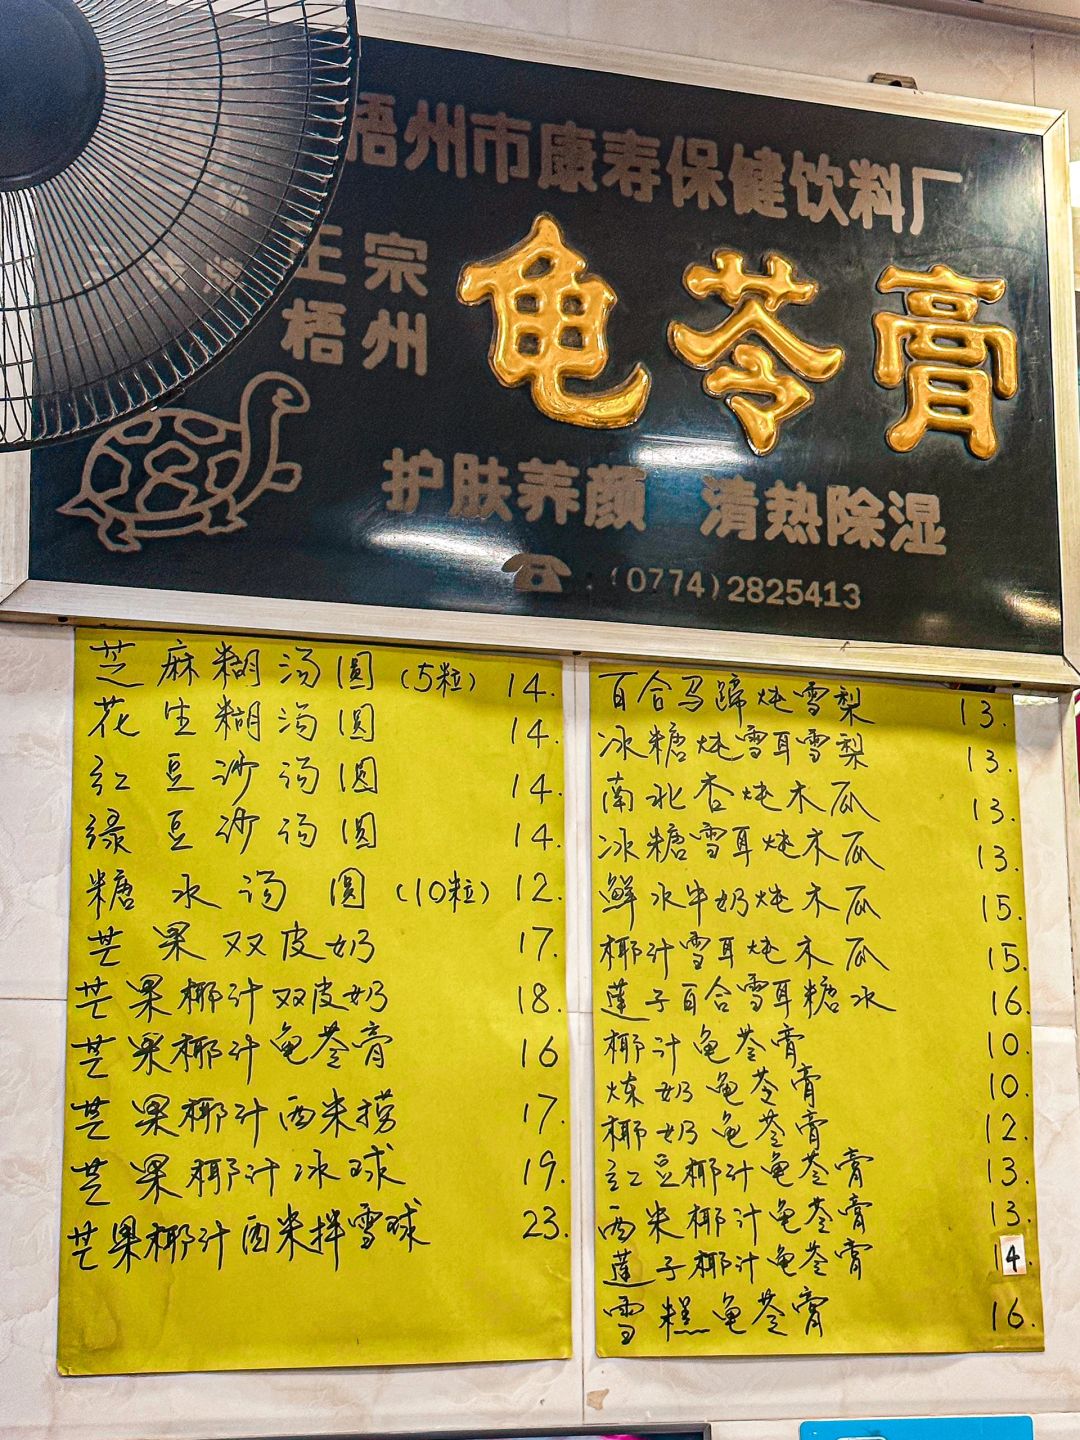 梧州市康寿保健饮料厂
正宗
梧州
龟苓膏
护肤养颜 清热除湿
(0774)2825413
芝麻糊汤圆(5粒) 14.
花生糊汤圆 14.
红豆沙汤圆 14.
绿豆沙汤圆 14.
糖水汤圆(10粒) 12.
芒果双皮奶 17.
芒果椰汁双皮奶 18.
芒果椰汁龟苓膏 16
芒果椰汁西米捞 17.
芒果椰汁冰球 19.
芒果椰汁西米拌雪球 23.
百合马蹄炖雪梨 13.
冰糖炖雪耳雪梨 13.
南北杏炖木瓜 13.
冰糖雪耳炖木瓜 13.
鲜水牛奶炖木瓜 15.
椰汁雪耳炖木瓜 15.
莲子百合雪耳糖水 16
椰汁龟苓膏 10.
炼奶龟苓膏 10.
椰奶龟苓膏 12.
红豆椰汁龟苓膏 13.
西米椰汁龟苓膏 13.
莲子椰汁龟苓膏 14
雪糕龟苓膏 16.